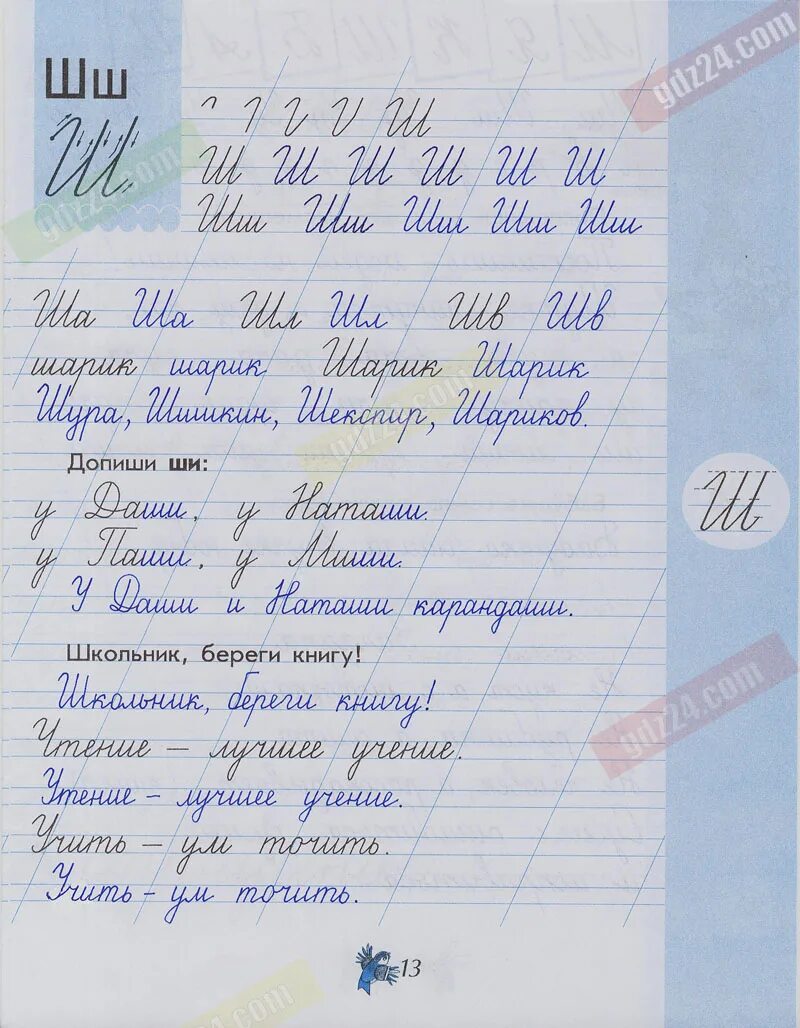 Шш
Ш
Ш
Ш Ш Ш Ш Ш Ш
Шш Шш Шш Шш Шш
Ша Ша Шл Шл Шв Шв
шарик шарик Шарик Шарик
Шура, Шишкин, Шекспир, Шариков.
Допиши ши:
у Даши, у Наташи.
у Паши, у Миши.
У Даши и Наташи карандаши.
Ш
Школьник, береги книгу!
Школьник, береги книгу!
Чтение – лучшее учение.
Чтение – лучшее учение.
Учить – ум точить.
Учить – ум точить.
13
gdz24.com
gdz24.com
gdz24.com
gdz24.com
gdz24.com